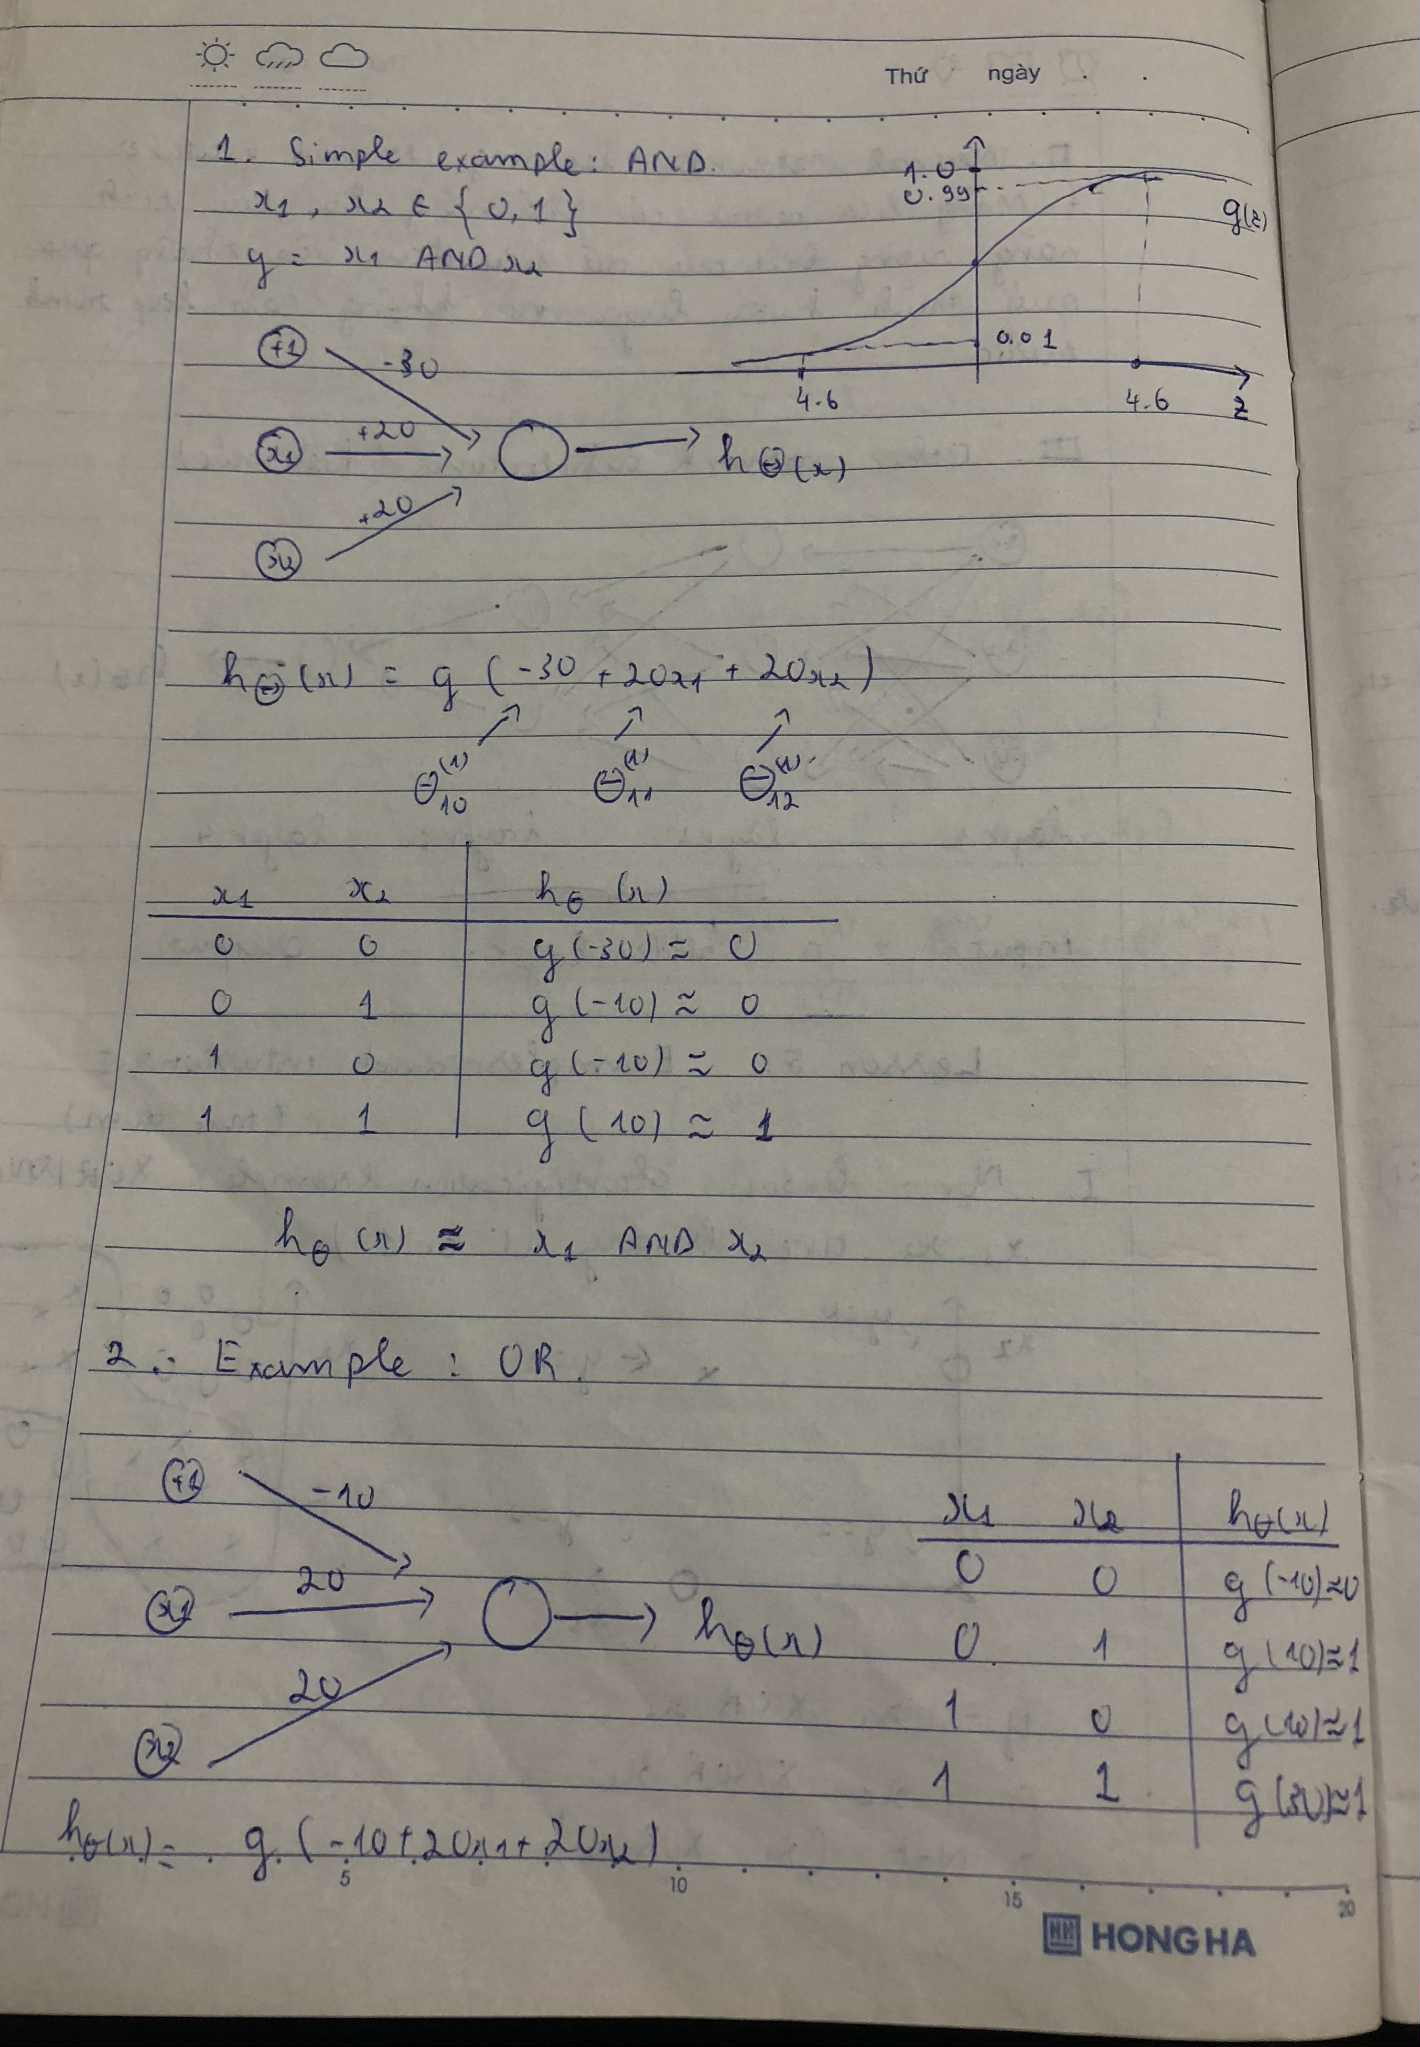 Thứ ngày
1. Simple example: AND.
x1, x2 ∈ {0,1}
y = x1 AND x2
1.0
0.99
g(z)
0.01
4.6 4.6 z
+1 -30
x1 +20 hΘ(x)
x2 +20
hΘ(x) = g(-30 + 20x1 + 20x2)
Θ10(1) Θ11(1) Θ12(1)
x1 x2 hθ(x)
0 0 g(-30) ≈ 0
0 1 g(-10) ≈ 0
1 0 g(-10) ≈ 0
1 1 g(10) ≈ 1
hθ(x) ≈ x1 AND x2
2. Example: OR.
+1 -10
x1 20 hθ(x)
x2 20
x1 x2 hθ(x)
0 0 g(-10)≈0
0 1 g(10)≈1
1 0 g(10)≈1
1 1 g(30)≈1
hθ(x) = g(-10+20x1+20x2)
5 10 15 20
HH HONG HA